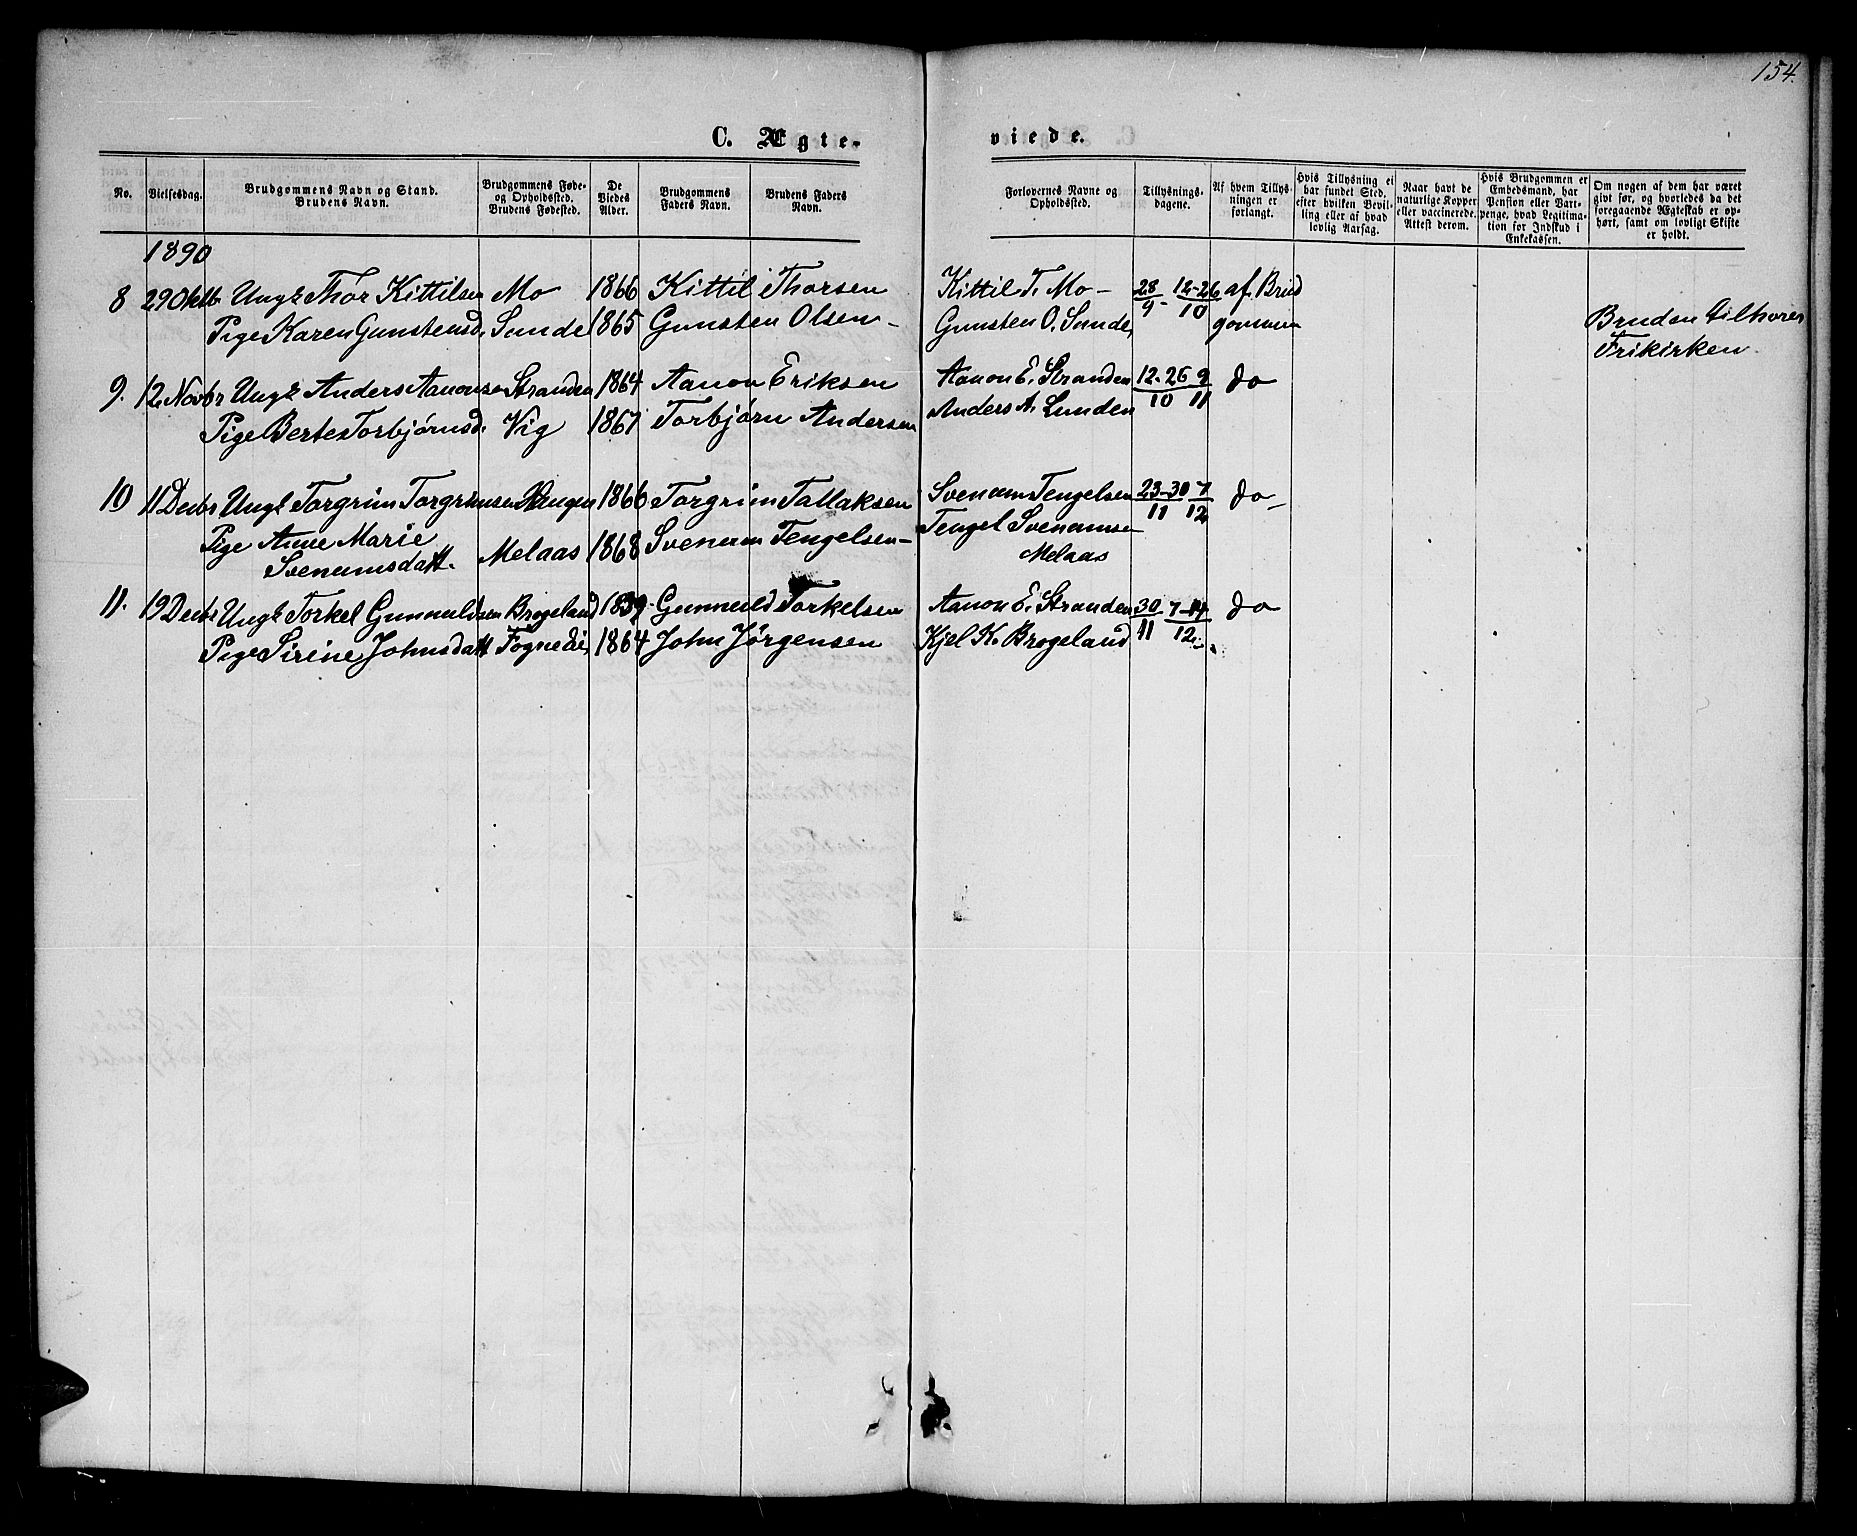 154.
C. Ægte-
viede.
No.
Vielsesdag.
Brudgommens Navn og Stand.
Brudens Navn.
Brudgommens Føde-
og Opholdssted.
Brudens Fødested.
De
Viedes
Alder.
Brudgommens
Faders Navn.
Brudens Faders
Navn.
Forlovernes Navne og
Opholdssted.
Tillysnings-
dagene.
Af hvem Tillys-
ningen er
forlangt.
Hvis Tillysning ei
har fundet Sted,
efter hvilken Bevil-
ling eller af hvad
lovlig Aarsag.
Naar havt de
naturlige Kopper
eller vaccinerede.
Attest derom.
Hvis Brudgommen er
Embedsmand, har
Pension eller Vart-
penge, hvad Legitima-
tion for Indskud i
Enkekassen.
Om nogen af dem har været
givt før, og hvorledes da det
foregaaende Ægteskab er op-
hørt, samt om lovligt Skifte
er holdt.
1890
8 29 Oktb Ungk Thor Kittilsen Mo 1866 Kittil Thorsen Kittil T. Mo - 28/9 - 12-26/10 af Brud
Pige Karen Gunstensd. Sunde 1865 Gunsten Olsen - Gunsten O. Sunde, gommen
Bruden tilhører
Frikirken.
9. 12 Novbr Ungk Anders Aanonsen Stranden 1864 Aanon Eriksen Aanon E. Stranden 12-26/10 9/11 do
Pige Berte Torbjørnsd. Vig 1867 Torbjørn Andersen Anders A. Lunden
10 11 Decbr Ungk Torgrim Torgrimsen 1866 Torgrim Tallaksen Svenum Tengelsen 23-30/11 7/12 do -
Pige Anne Marie
Svenumsdatt. Melaas 1868 Svenum Tengelsen - Tengel Svenumsen
Melaas
11. 19 Decbr Ungk Torkel Gunnuldsen Brogeland 1859 Gunnuld Torkelsen Aanon E. Stranden 30/11 7-14/12 do
Pige Sirine Johnsdatt Fognedi, 1864 John Jørgensen Kjel K. Brogeland